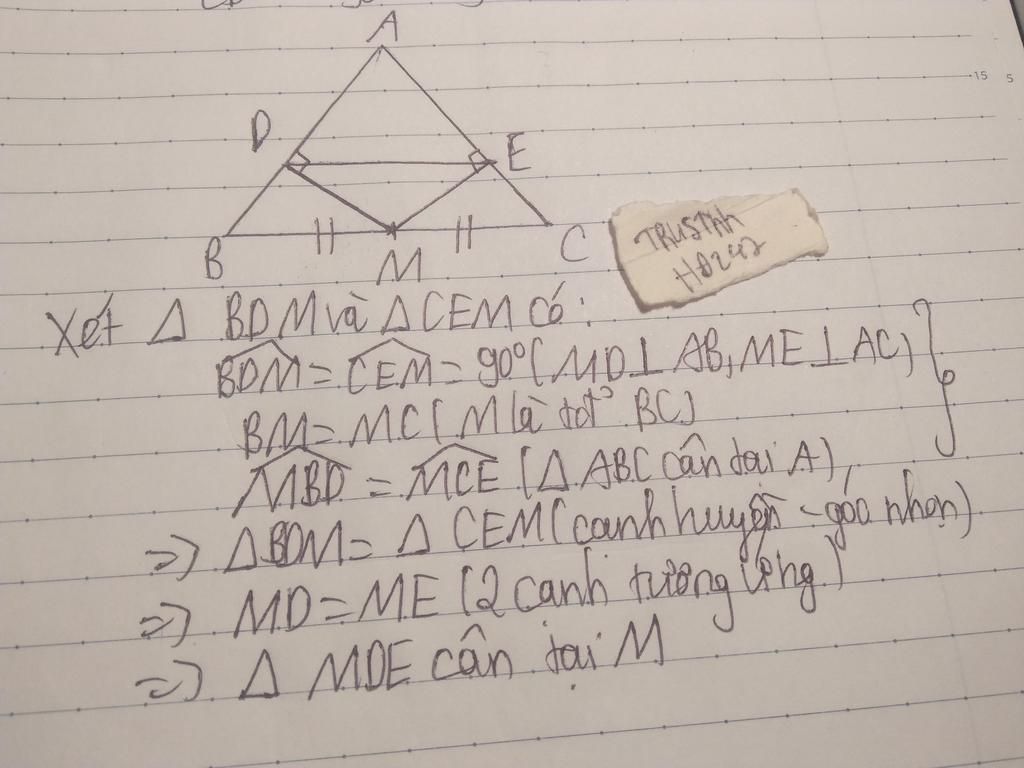 A
15 5
D
E
B
M
C
TRUSTAH
HD247
Xét Δ BDM và Δ CEM Có:
BDM = CEM = 90° (MD⊥AB, ME⊥AC)
BM = MC (M là tđ BC)
MBD = MCE (Δ ABC cân tại A)
=> ΔBDM = Δ CEM (cạnh huyền - góc nhọn)
=> MD = ME (2 cạnh tương ứng)
=> Δ MDE cân tại M